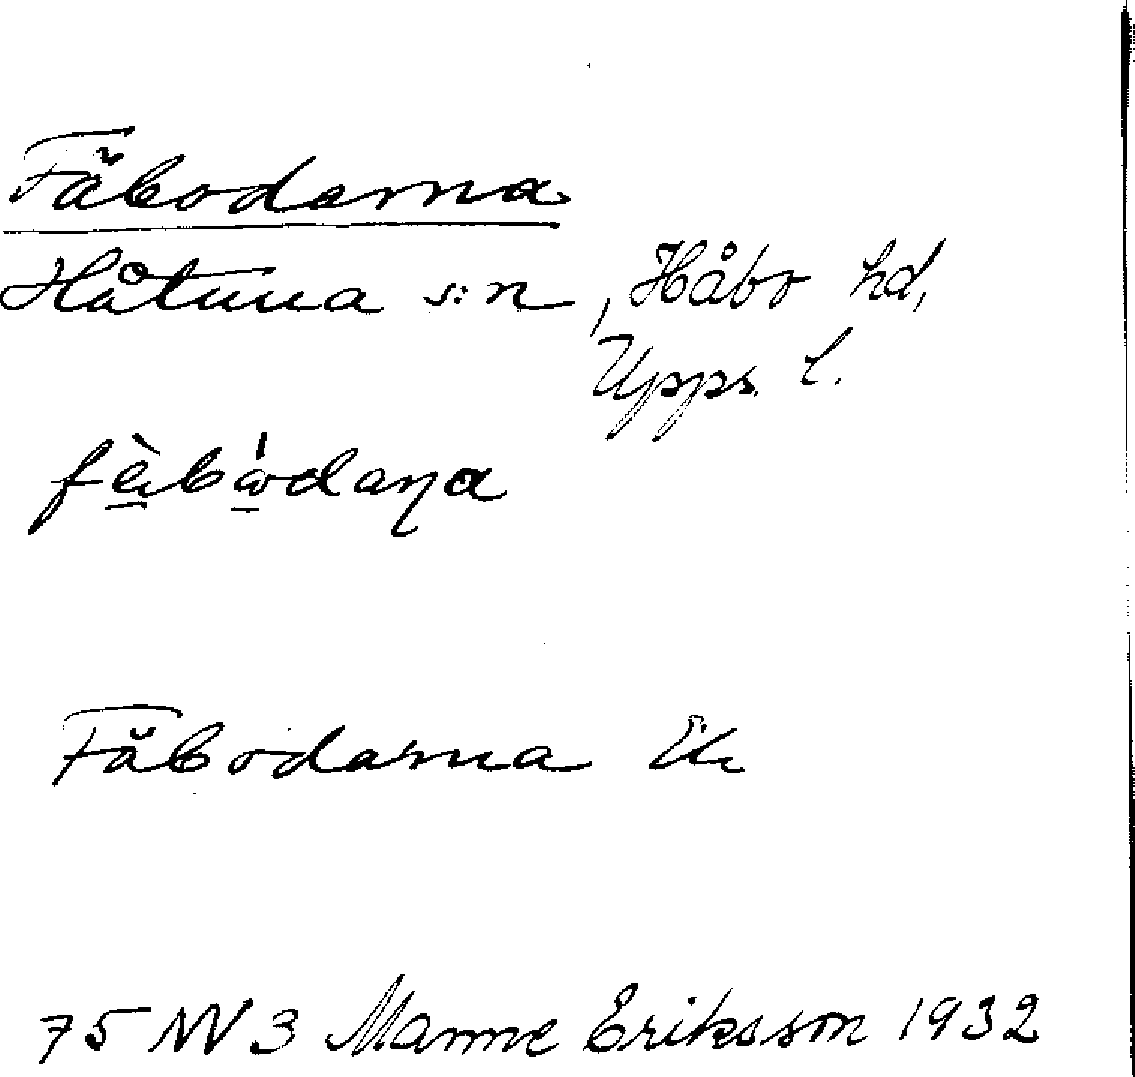 Fäbodarna
Håtuna s:n, Håbo hd,
Upps. l.
Fäbodarna Ek
75 NV 3 Manne Eriksson 1932